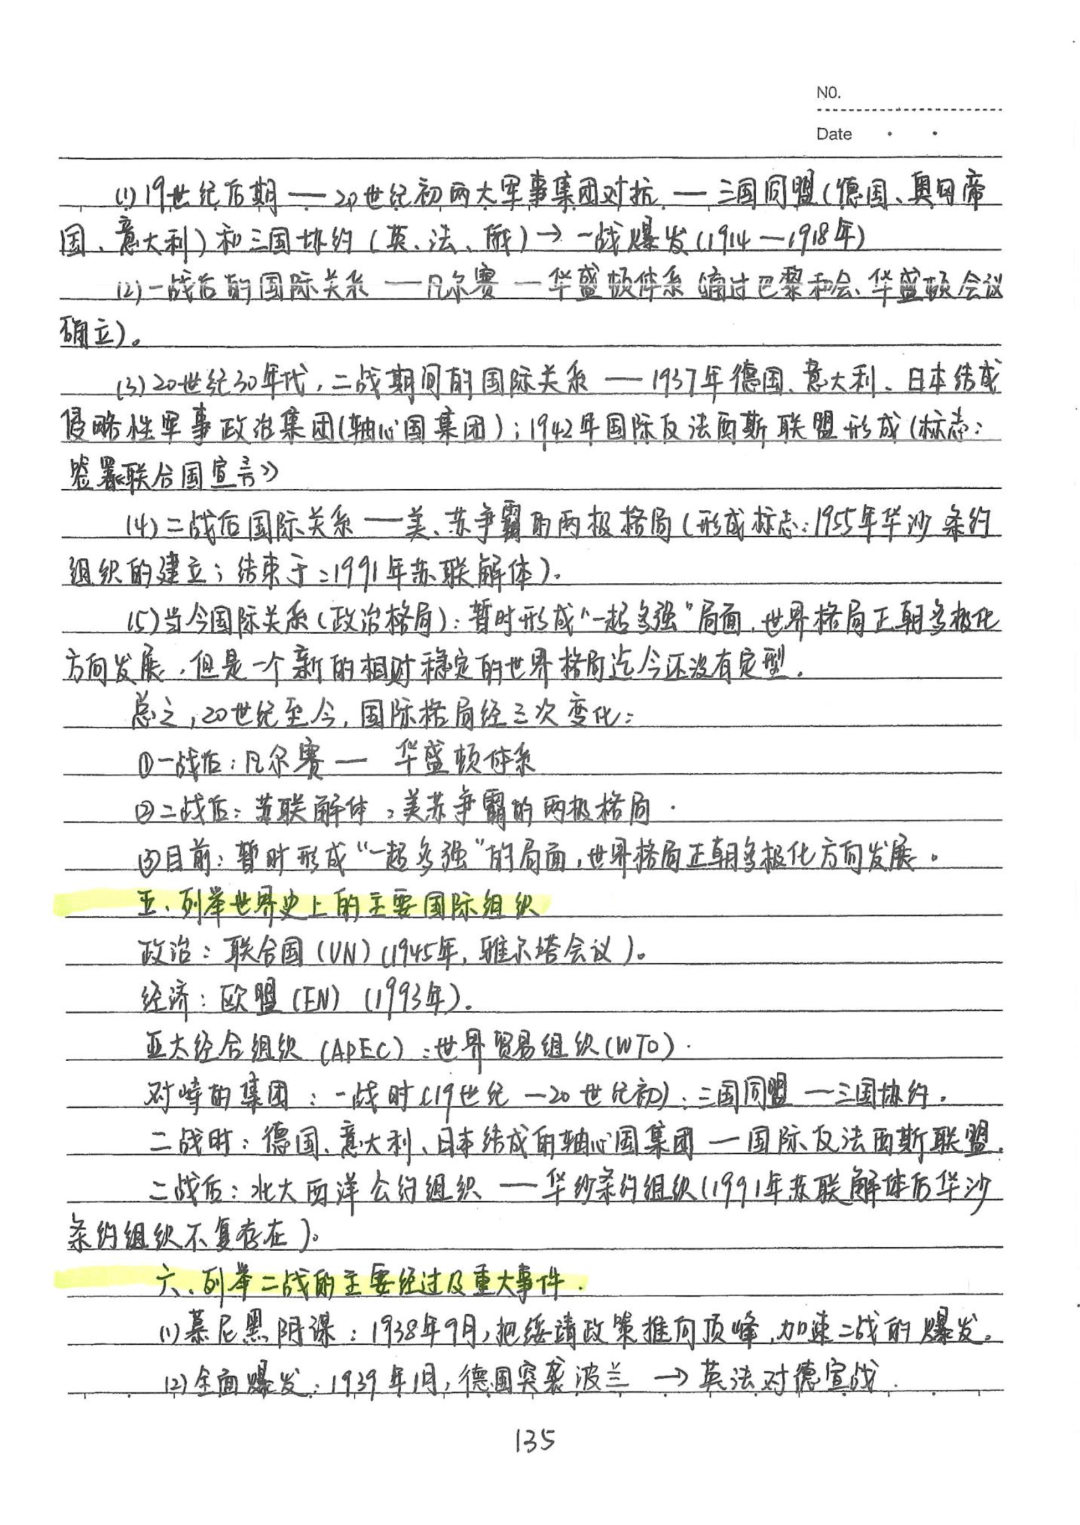 NO.
Date
(1)19世纪后期——20世纪初两大军事集团对抗——三国同盟(德国、奥匈帝
国、意大利)和三国协约(英、法、俄)→一战爆发(1914—1918年)
(2)一战后的国际关系——凡尔赛—华盛顿体系(通过巴黎和会、华盛顿会议
确立)。
(3)20世纪30年代,二战期间的国际关系——1937年德国、意大利、日本结成
侵略性军事政治集团(轴心国集团);1942年国际反法西斯联盟形成(标志:
签署联合国宣言》
(4)二战后国际关系——美、苏争霸的两极格局(形成标志:1955年华沙条约
组织的建立;结束于:1991年苏联解体).
(5)当今国际关系(政治格局):暂时形成“一超多强”局面,世界格局正朝多极化
方向发展,但是一个新的相对稳定的世界格局迄今还没有定型.
总之,20世纪至今,国际格局经三次变化:
①一战后:凡尔赛— 华盛顿体系
②二战后:苏联解体,美苏争霸的两极格局.
③目前:暂时形成“一超多强”的局面,世界格局正朝多极化方向发展。
五、列举世界史上的主要国际组织
政治:联合国(UN)(1945年,雅尔塔会议)。
经济:欧盟(EN)(1993年).
亚太经合组织(APEC):世界贸易组织(WTO).
对峙的集团:一战时(19世纪—20世纪初):三国同盟——三国协约.
二战时:德国、意大利、日本结成的轴心国集团—国际反法西斯联盟.
二战后:北大西洋公约组织——华纱条约组织(1991年苏联解体后华沙
条约组织不复存在)。
六、列举二战的主要经过及重大事件.
(1)慕尼黑阴谋:1938年9月,把绥靖政策推向顶峰,加速二战的爆发。
(2)全面爆发:1939年1月,德国突袭波兰→英法对德宣战.
135